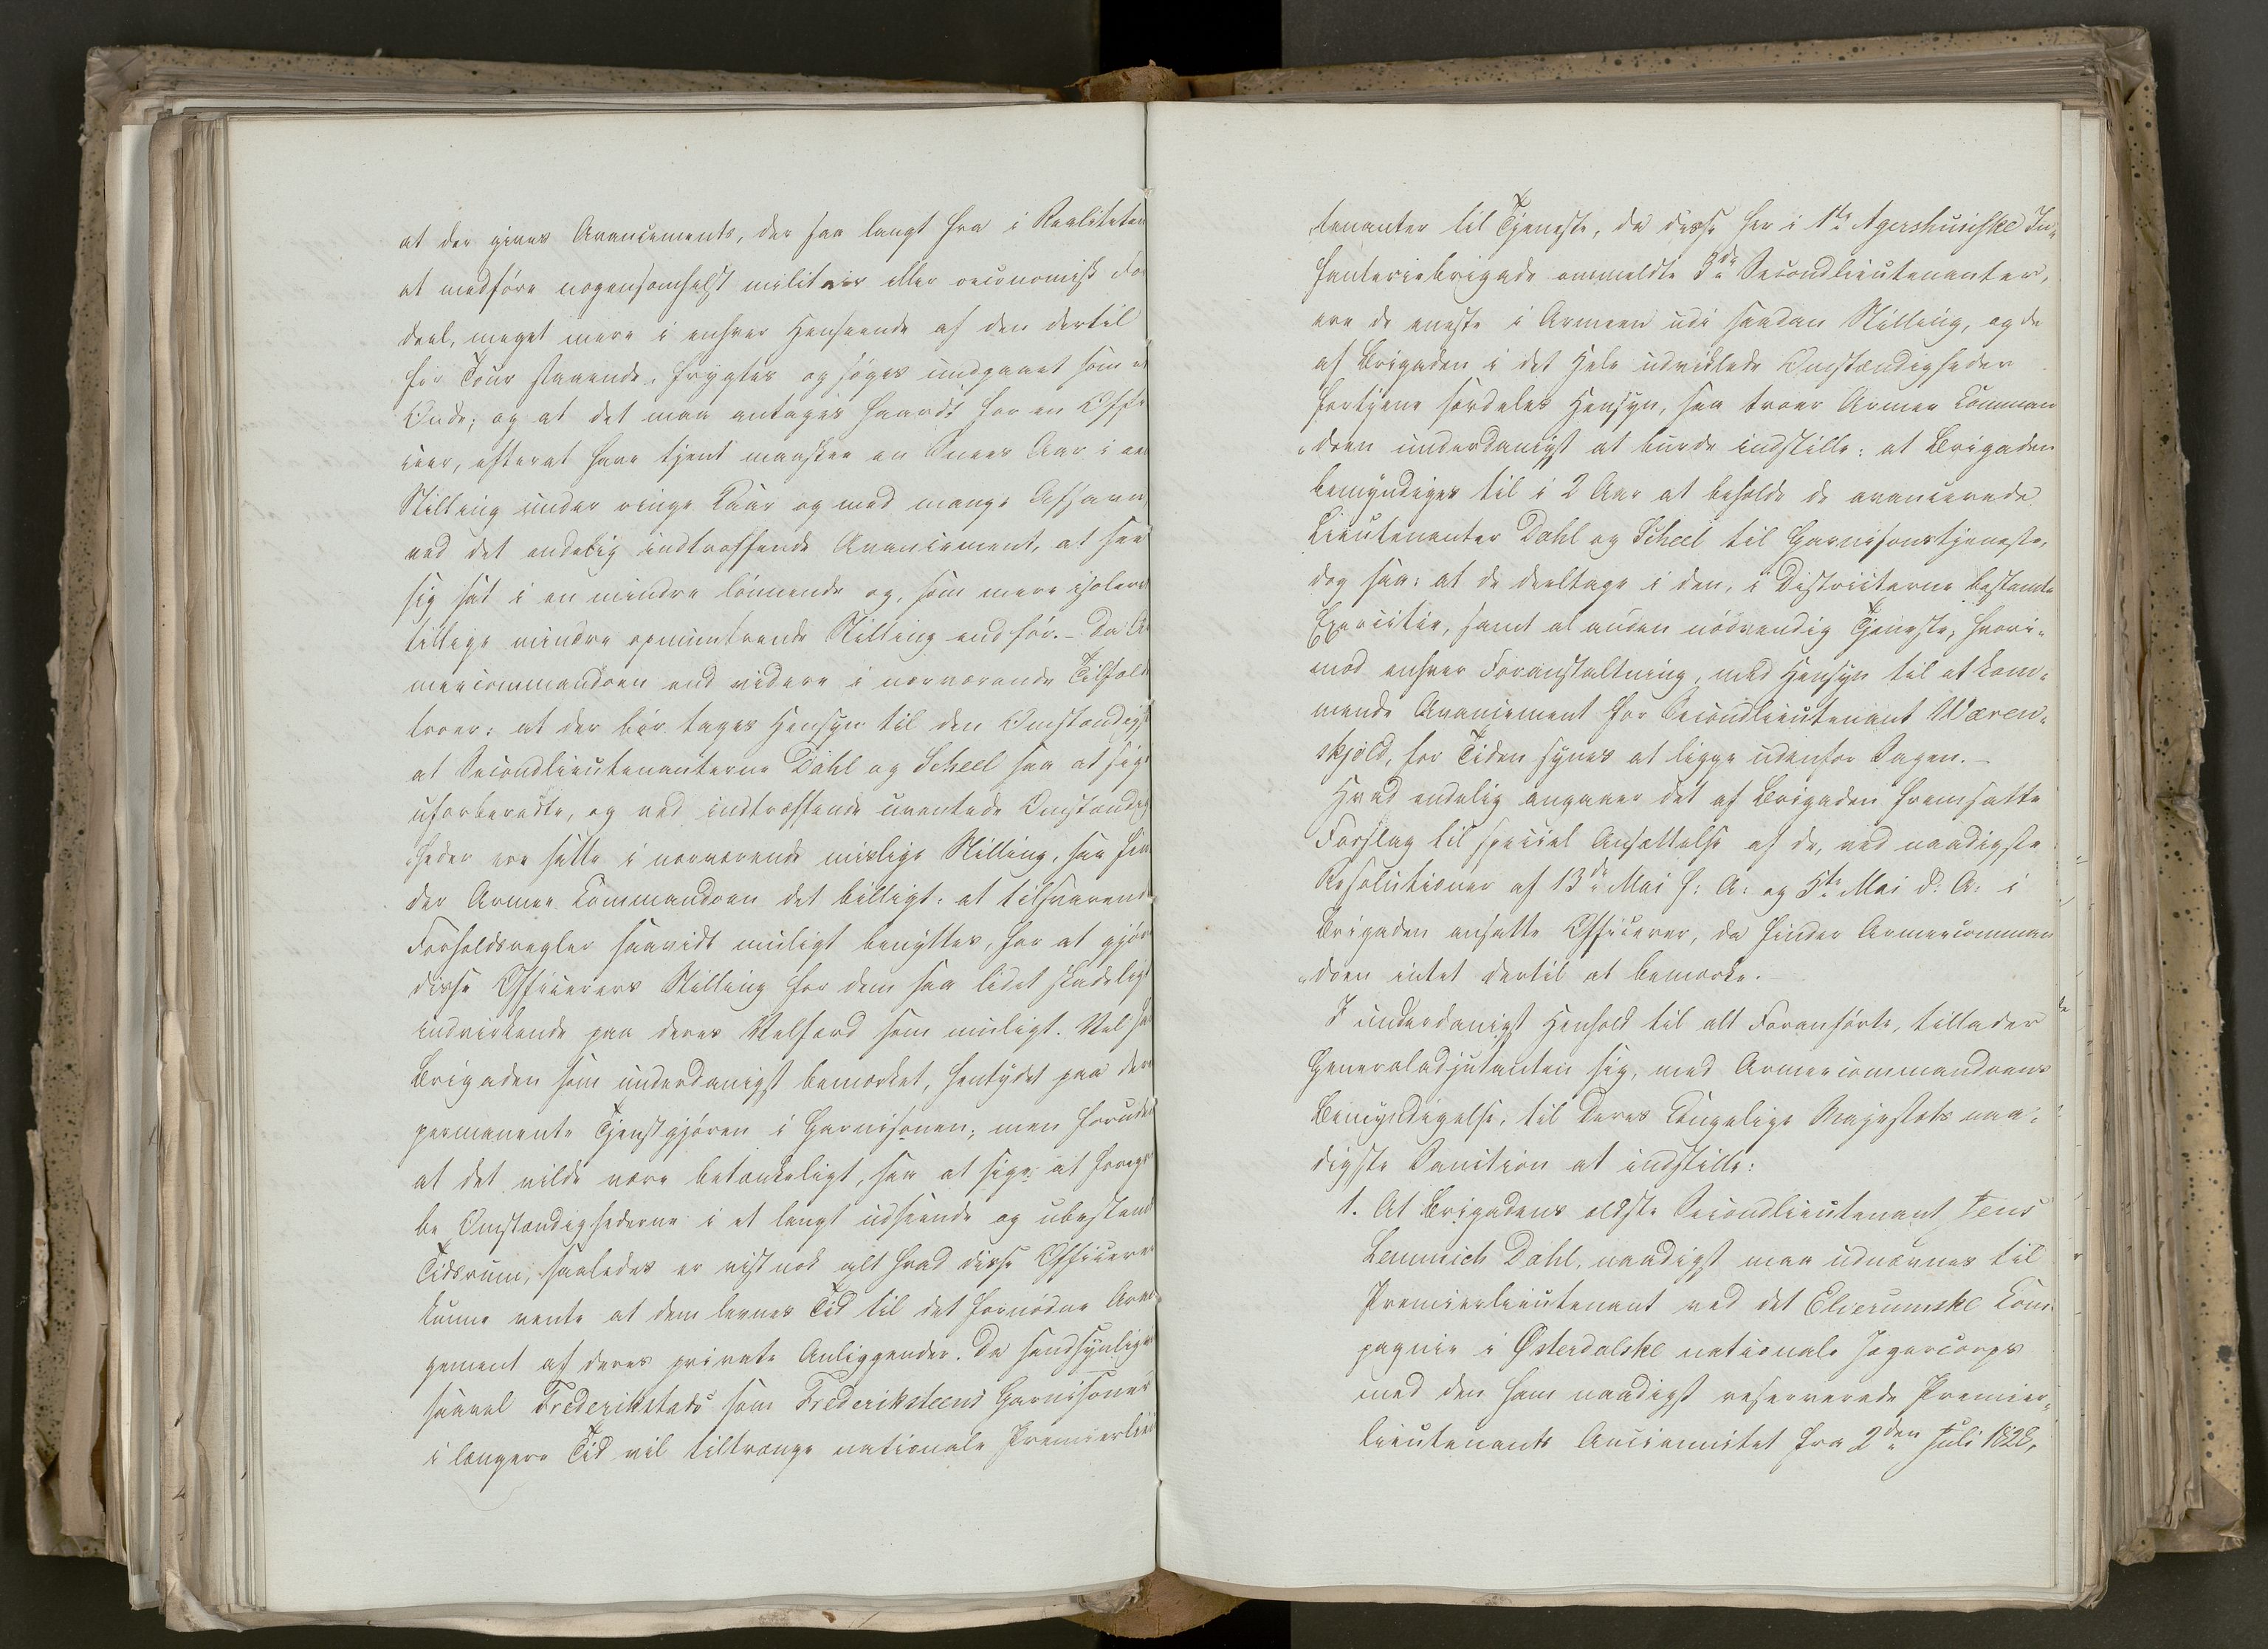 at der gives Avancements, der saa langt fra i Realiteten
at medføre nogensomhelst militair eller oeconomisk For
deel, meget mere i enhver Henseende af den dertil
for Tour staaende, frygtes og søges undgaaet som et
Onde; og at det maa antages haardt for en Offi
ceer, efterat have tjent maaskee en Snees Aar i en
Stilling under ringe Kaar og med mange Afsavn,
ved det endelig indtræffende Avancement, at see
sig sat i en mindre lønnende og, som mere isoleret
tillige mindre opmuntrende Stilling end før. – Da Ar
meecommandoen end videre i nærværende Tilfælde
troer: at der bør tages Hensyn til den Omstændigh
at Secondlieutenanterne Dahl og Scheel saa at sige
uforberedte, og ved indtræffende uventede Omstændig
heder ere satte i nærværende mislige Stilling, saa fin
der Armee Commandoen det billigt: at tilsvarende
Forholdsregler saavidt muligt benyttes, for at gjøre
disse Officerers Stilling for dem saa lidet skadeligt
indvirkende paa deres Velfærd som muligt. Vel har
Brigaden som underdanigst bemærket, hentydet paa den
permanente Tjenstgjøren i Garnisonen; men foruden
at det vilde være betænkeligt, saa at sige: at foregri
be Omstændighederne i et langt udseende og ubestemt
Tidsrum, saaledes er vist nok alt hvad disse Officerer
kunne vente at dem levnes Tid til det fornødne Aran
gement af deres private Anliggender. Da sandsynligen
saavel Frederikstads som Frederiksteens Garnisoner
i længere Tid vil tiltrænge nationale Premierlieu
tenanter til Tjeneste, da disse her i 1ste Agershusiske In-
fanteriebrigade anmeldte 3de Secondlieutenanter,
ere de eneste i Armeen udi saadan Stilling, og de
af Brigaden i det Hele udviklede Omstændigheder
fortjene særdeles Hensyn, saa troer Armee Comman
doen underdanigst at burde indstille: at Brigaden
bemyndiges til i 2 Aar at beholde de avancerede
Lieutenanter Dahl og Scheel til Garnisonstjeneste,
dog saa: at de deeltage i den, i Districterne bestemte
Exercitie, samt al anden nødvendig Tjeneste, hvori-
mod enhver Foranstaltning, med Hensyn til et kom-
mende Avancement for Secondlieutenant Wæren-
skjold, for Tiden synes at ligge udenfor Sagen. –
Hvad endelig angaaer det af Brigaden fremsatte
Forslag til special Ansættelse af de, ved naadigste
Resolutioner af 13de Mai f: A: og 5te Mai d: A: i
Brigaden ansatte Officerer, da finder Armeecomman
doen intet dertil at bemærke. –
I underdanigst Henhold til alt Foranførte, tillader
Generaladjutanten sig, med Armeecommandoens
Bemyndigelse, til Deres Kongelige Majestæts naa-
digste Sanction at indstille:
1. At Brigadens ældste Secondlieutenant Jens
Lemmich Dahl, naadigst maa udnævnes til
Premierlieutenant ved det Elverumske Com-
pagnie i Østerdalske nationale Jægercorps
med den ham naadigst reserverede Premier-
lieutenants Anciennitet fra 2den Juli 1828,